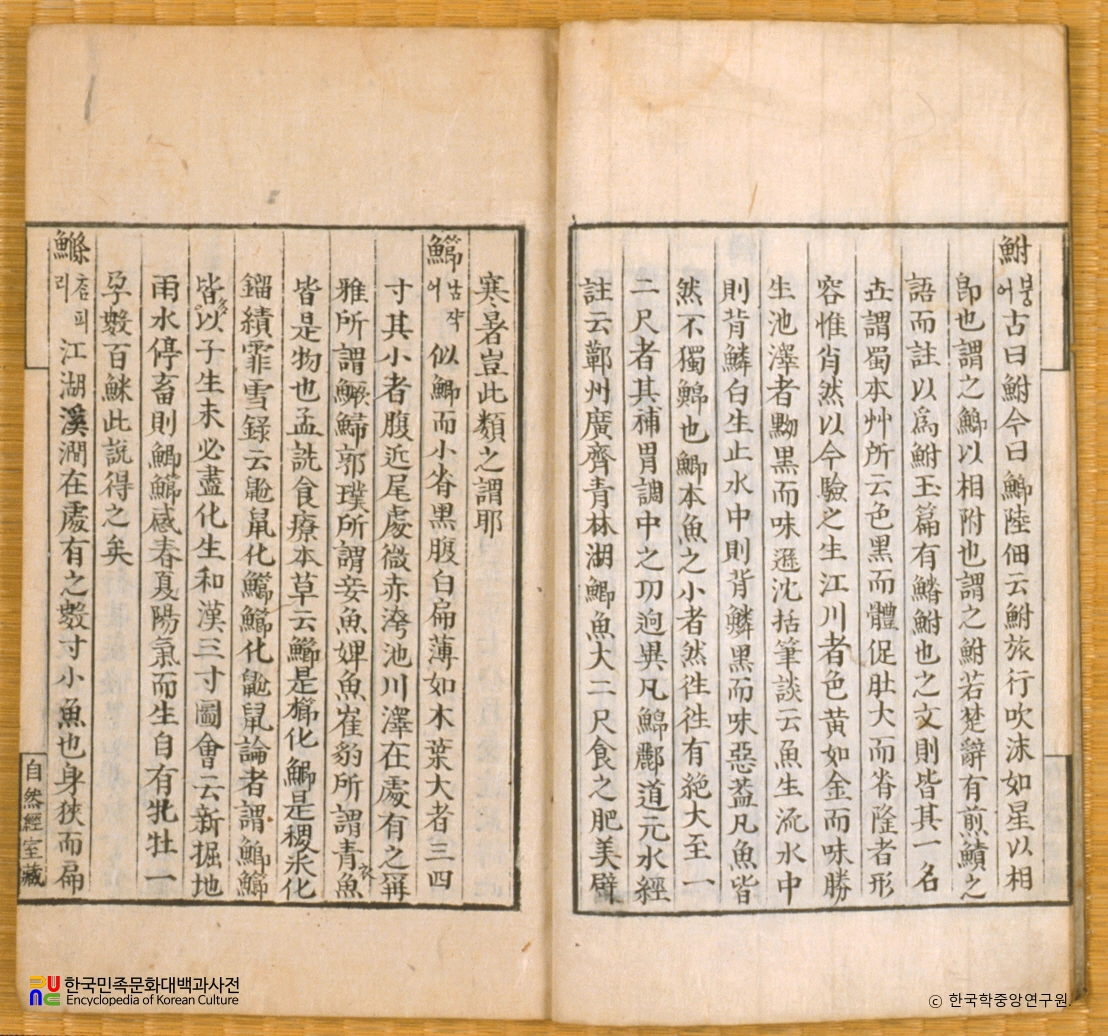 鮒 붕어 古曰鮒今曰鯽陸佃云鮒旅行吹沫如星以相
卽也謂之鯽以相附也謂之鮒若楚辭有煎鰿之
語而註以爲鮒玉篇有鱕鮒也之文則皆其一名
也謂蜀本艸所云色黑而體促肚大而脊隆者形
容惟肖然以今驗之生江川者色黃如金而味勝
生池澤者黝黑而味遜沈括筆談云魚生流水中
則背鱗白生止水中則背鱗黑而味惡蓋凡魚皆
然不獨鯽也鯽本魚之小者然徃徃有絶大至一
二尺者其補胃調中之功逈異凡鯽酈道元水經
註云蘄州廣齊青林湖鯽魚大二尺食之肥美辟
寒暑豈此類之謂耶
鰤 납쟉어 似鯽而小脊黑腹白扁薄如木葉大者三四
寸其小者腹近尾處微赤洿池川澤在處有之
雅所謂鱖鯞郭璞所謂妾魚婢魚崔豹所謂青衣魚
皆是物也孟詵食療本草云鰤是櫛化鯽是稷米化
鎦績霏雪錄云鼢鼠化鰤鰤化鼢鼠論者謂鯽鰤
皆多以子生未必盡化生和漢三寸圖會云新掘地
雨水停畜則鯽鰤感春夏陽氣而生自有牝牡一
孕數百鯠此說得之矣
鰷 춤피리 江湖溪澗在處有之數寸小魚也身狹而扁
自然經室藏
한국민족문화대백과사전
Encyclopedia of Korean Culture
© 한국학중앙연구원